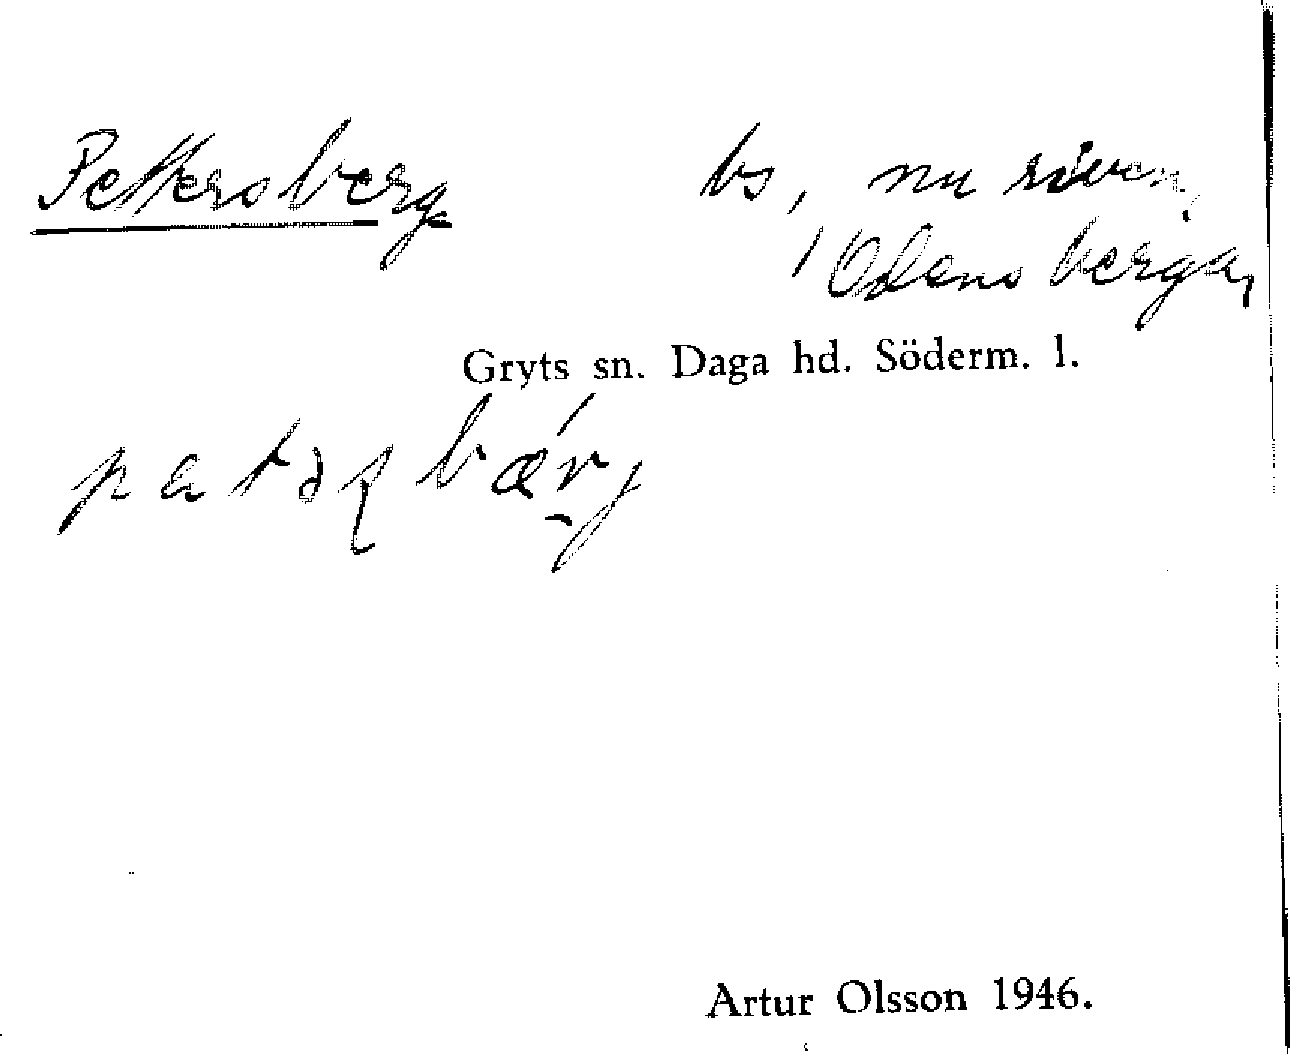 Pettersberg bs, nu riven,
i Odensberga,
Gryts sn. Daga hd. Söderm. l.
Artur Olsson 1946.